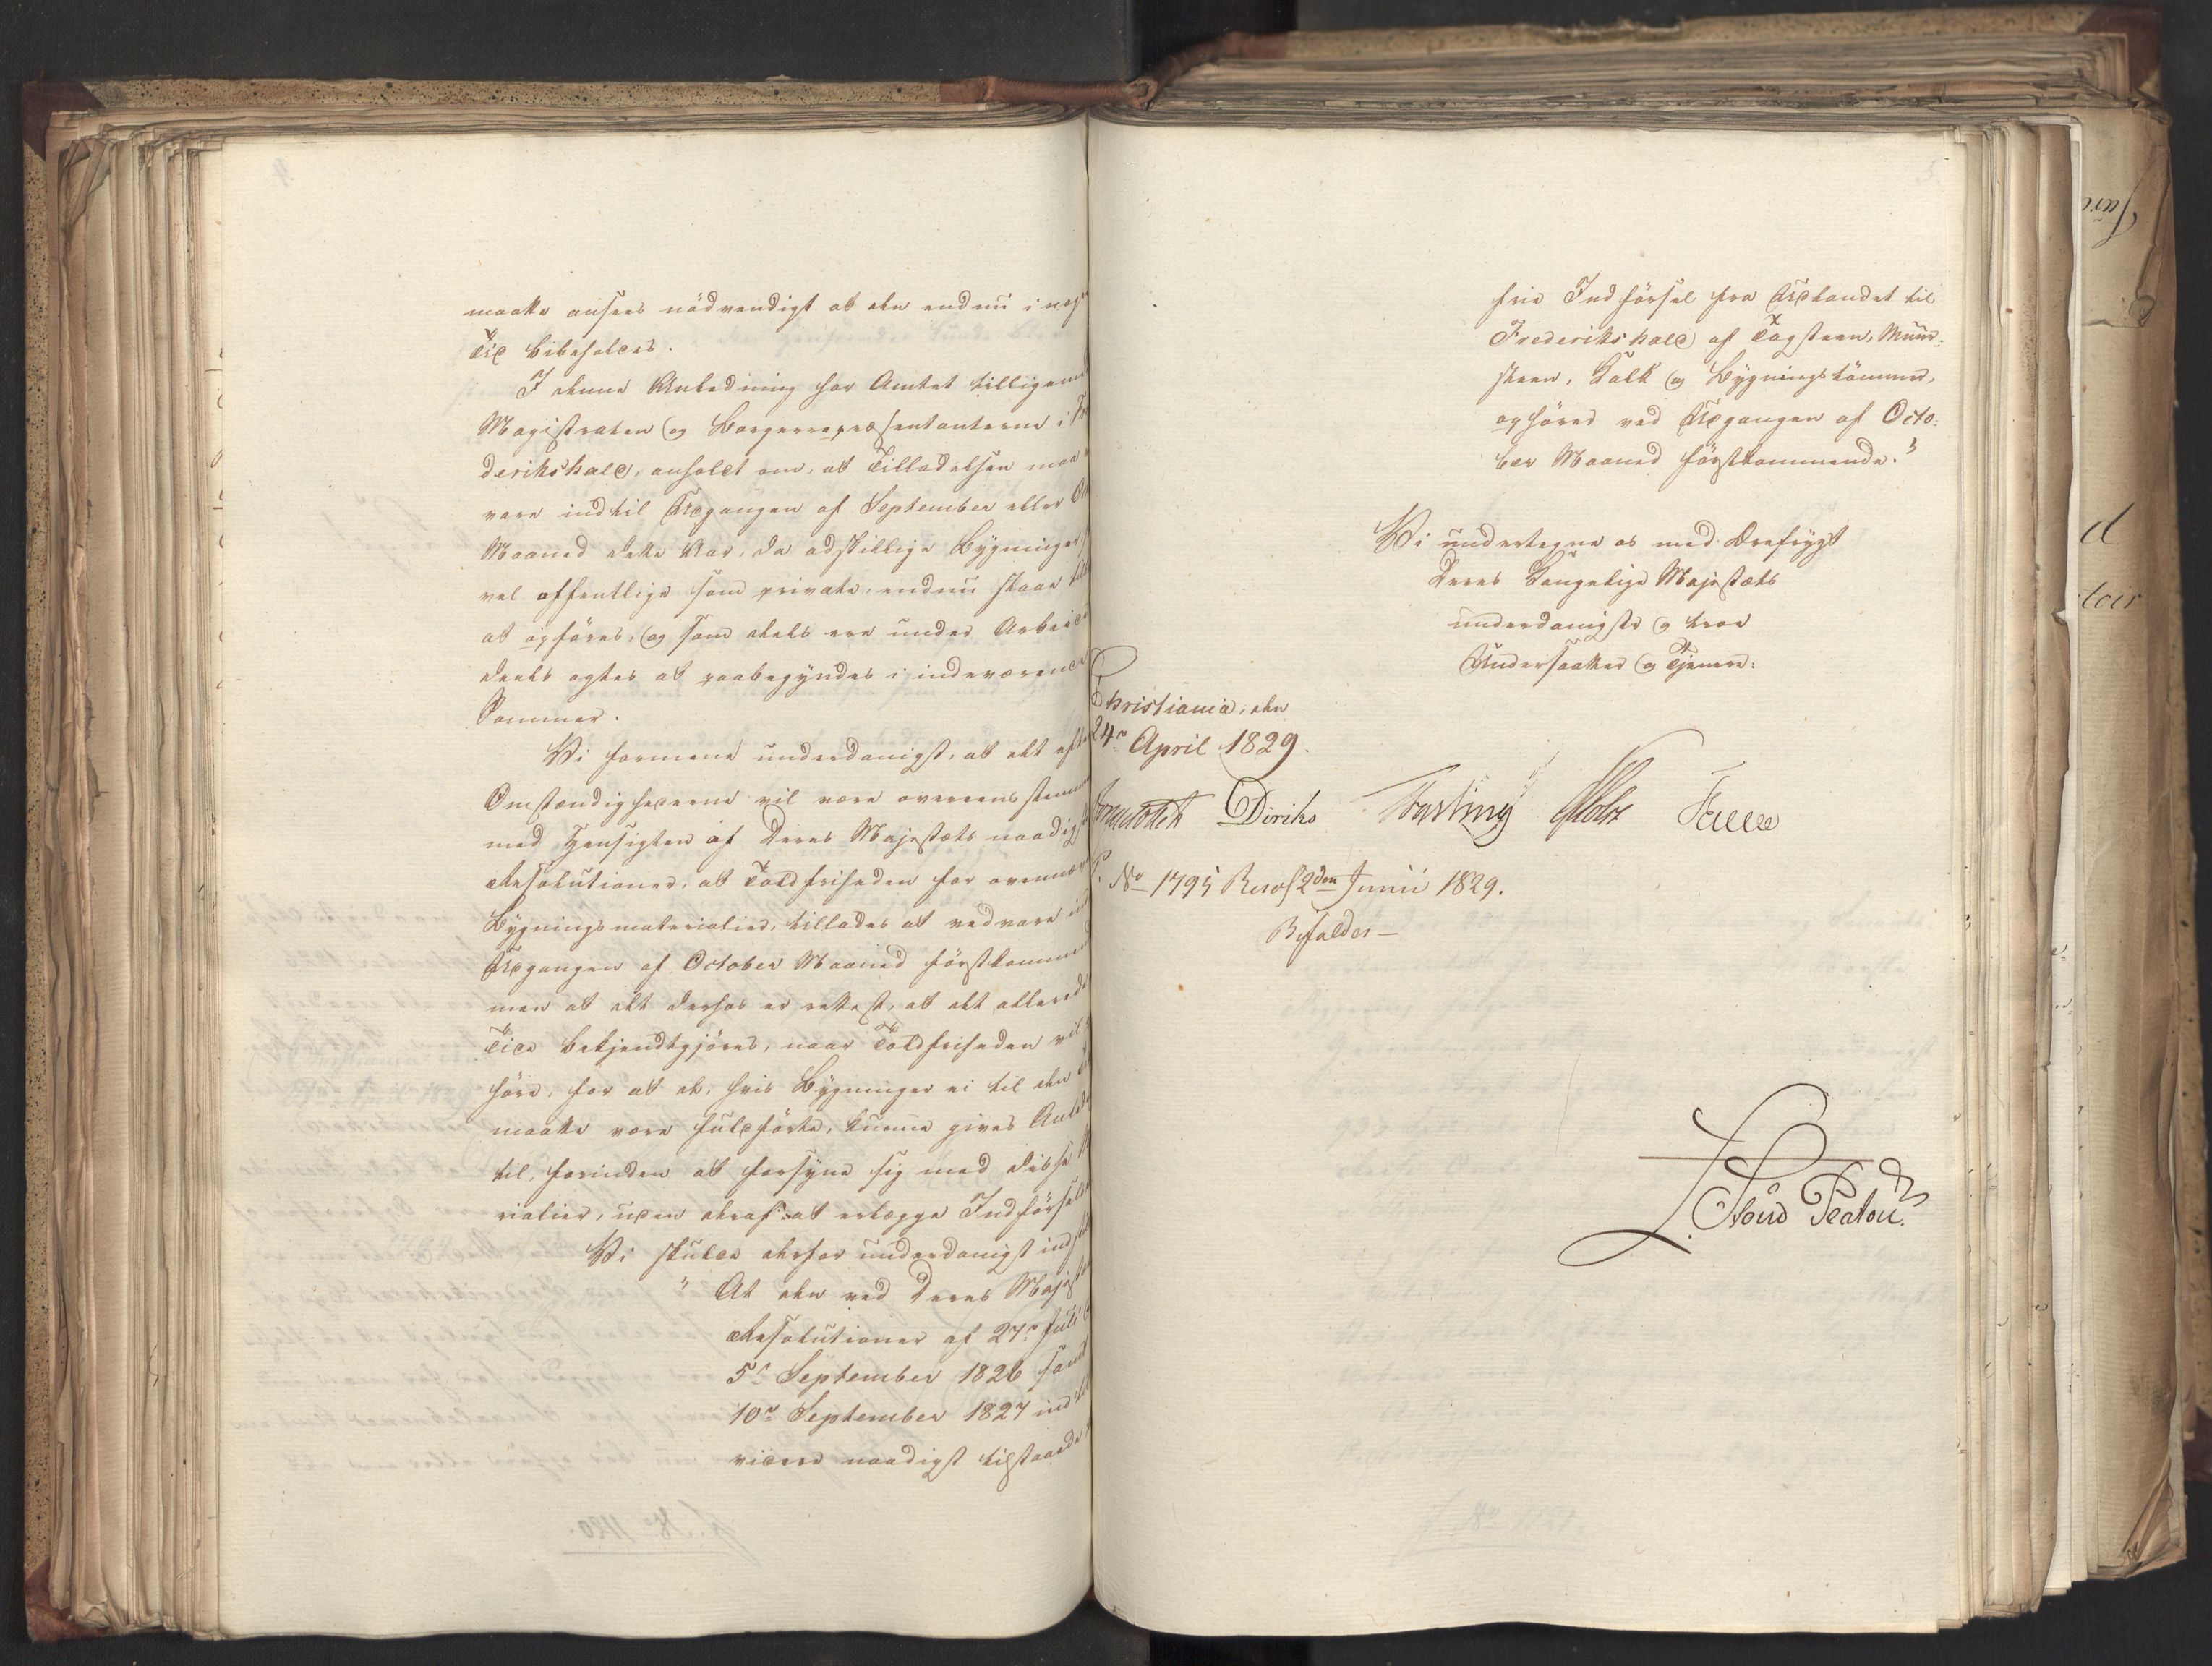 maatte ansees nödvendigt at den endnu i nogen
Tid bibeholdes.
I denne Anledning har Amtet tilligemed
Magistraten og Borgerrepræsentanterne i Fre
derikshald, anholdt om, at Tilladelsen maa
vare indtil Udgangen af September eller Oct
Maaned dette Aar, da adskillige Bygninger,
vel offentlige som private, endnu staae til
at opföres, og som deels ere under Arbeide
deels agtes at paabegyndes i indeværende
Sommer.
Vi formene underdanigst, at det efter
Omstændighederne vil være overeensstemm
med Hensigten af Deres Majestæts naadigste
Resolutioner, at Toldfriheden for ovennæv
Bygningsmaterialier, tillades at vedvare ind
Udgangen af October Maaned förstkommen
men at det derhos er rettest, at det allerede
Tide bekjendtgjöres, naar Toldfriheden vil
höre, for at de, hvis Bygninger ei til den
maatte være fuldförte, kunne gives Anled
til, forinden at forsyne sig med disse
rialier, uden deraf at erlægge Indförsels
Vi skulde derfor underdanigst indst
" At den ved Deres Majestæts
Resolutioner af 27de Juli
5te September 1826 samt
10de September 1827 indtil
videre naadigst tilstaaede
frie Indförsel fra Udlandet til
Frederikshald af Tagsteen, Muur-
steen, Kalk og Bygningstömmer,
ophörer ved Udgangen af Octo-
ber Maaned förstkommende."
Vi undertegne os med Ærefrygt
Deres Kongelige Majestæts
underdanigste og troe
Undersaatter og Tjenere:
Christiania, den
24de April 1829.
Diriks Fasting Holst
No 1795 Resol 2den Junii 1829.
Bifaldes —